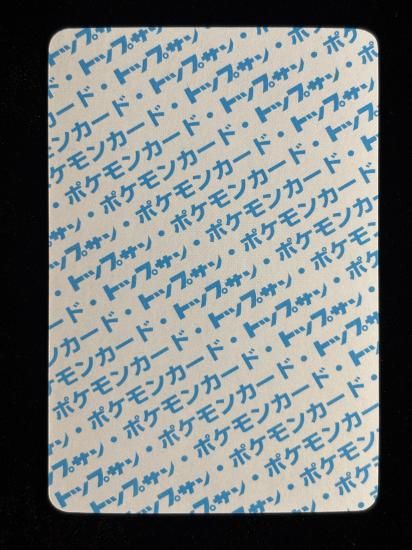 トップサン・
ード・トップサン・ポケ
ポケモンカード・トップサン・ポケモン
ポケモンカード・トップサン・ポケモンカード
・ポケモンカード・トップサン
トップサン・ポケモンカード・トップサン
トップサン・ポケモンカード・トップサン
トップサン・ポケモンカード・
・トップサン・ポケモンカード
カード・トップサン・ポケモンカード
モンカード・トップサン・ポケモン
ポケモンカード・トップサン・ポケ
ポケモンカード・トップサン・
・ポケモンカード・トップサン
トップサン・ポケモンカード・
トップサン・ポケモンカード
トップサン・ポケモン